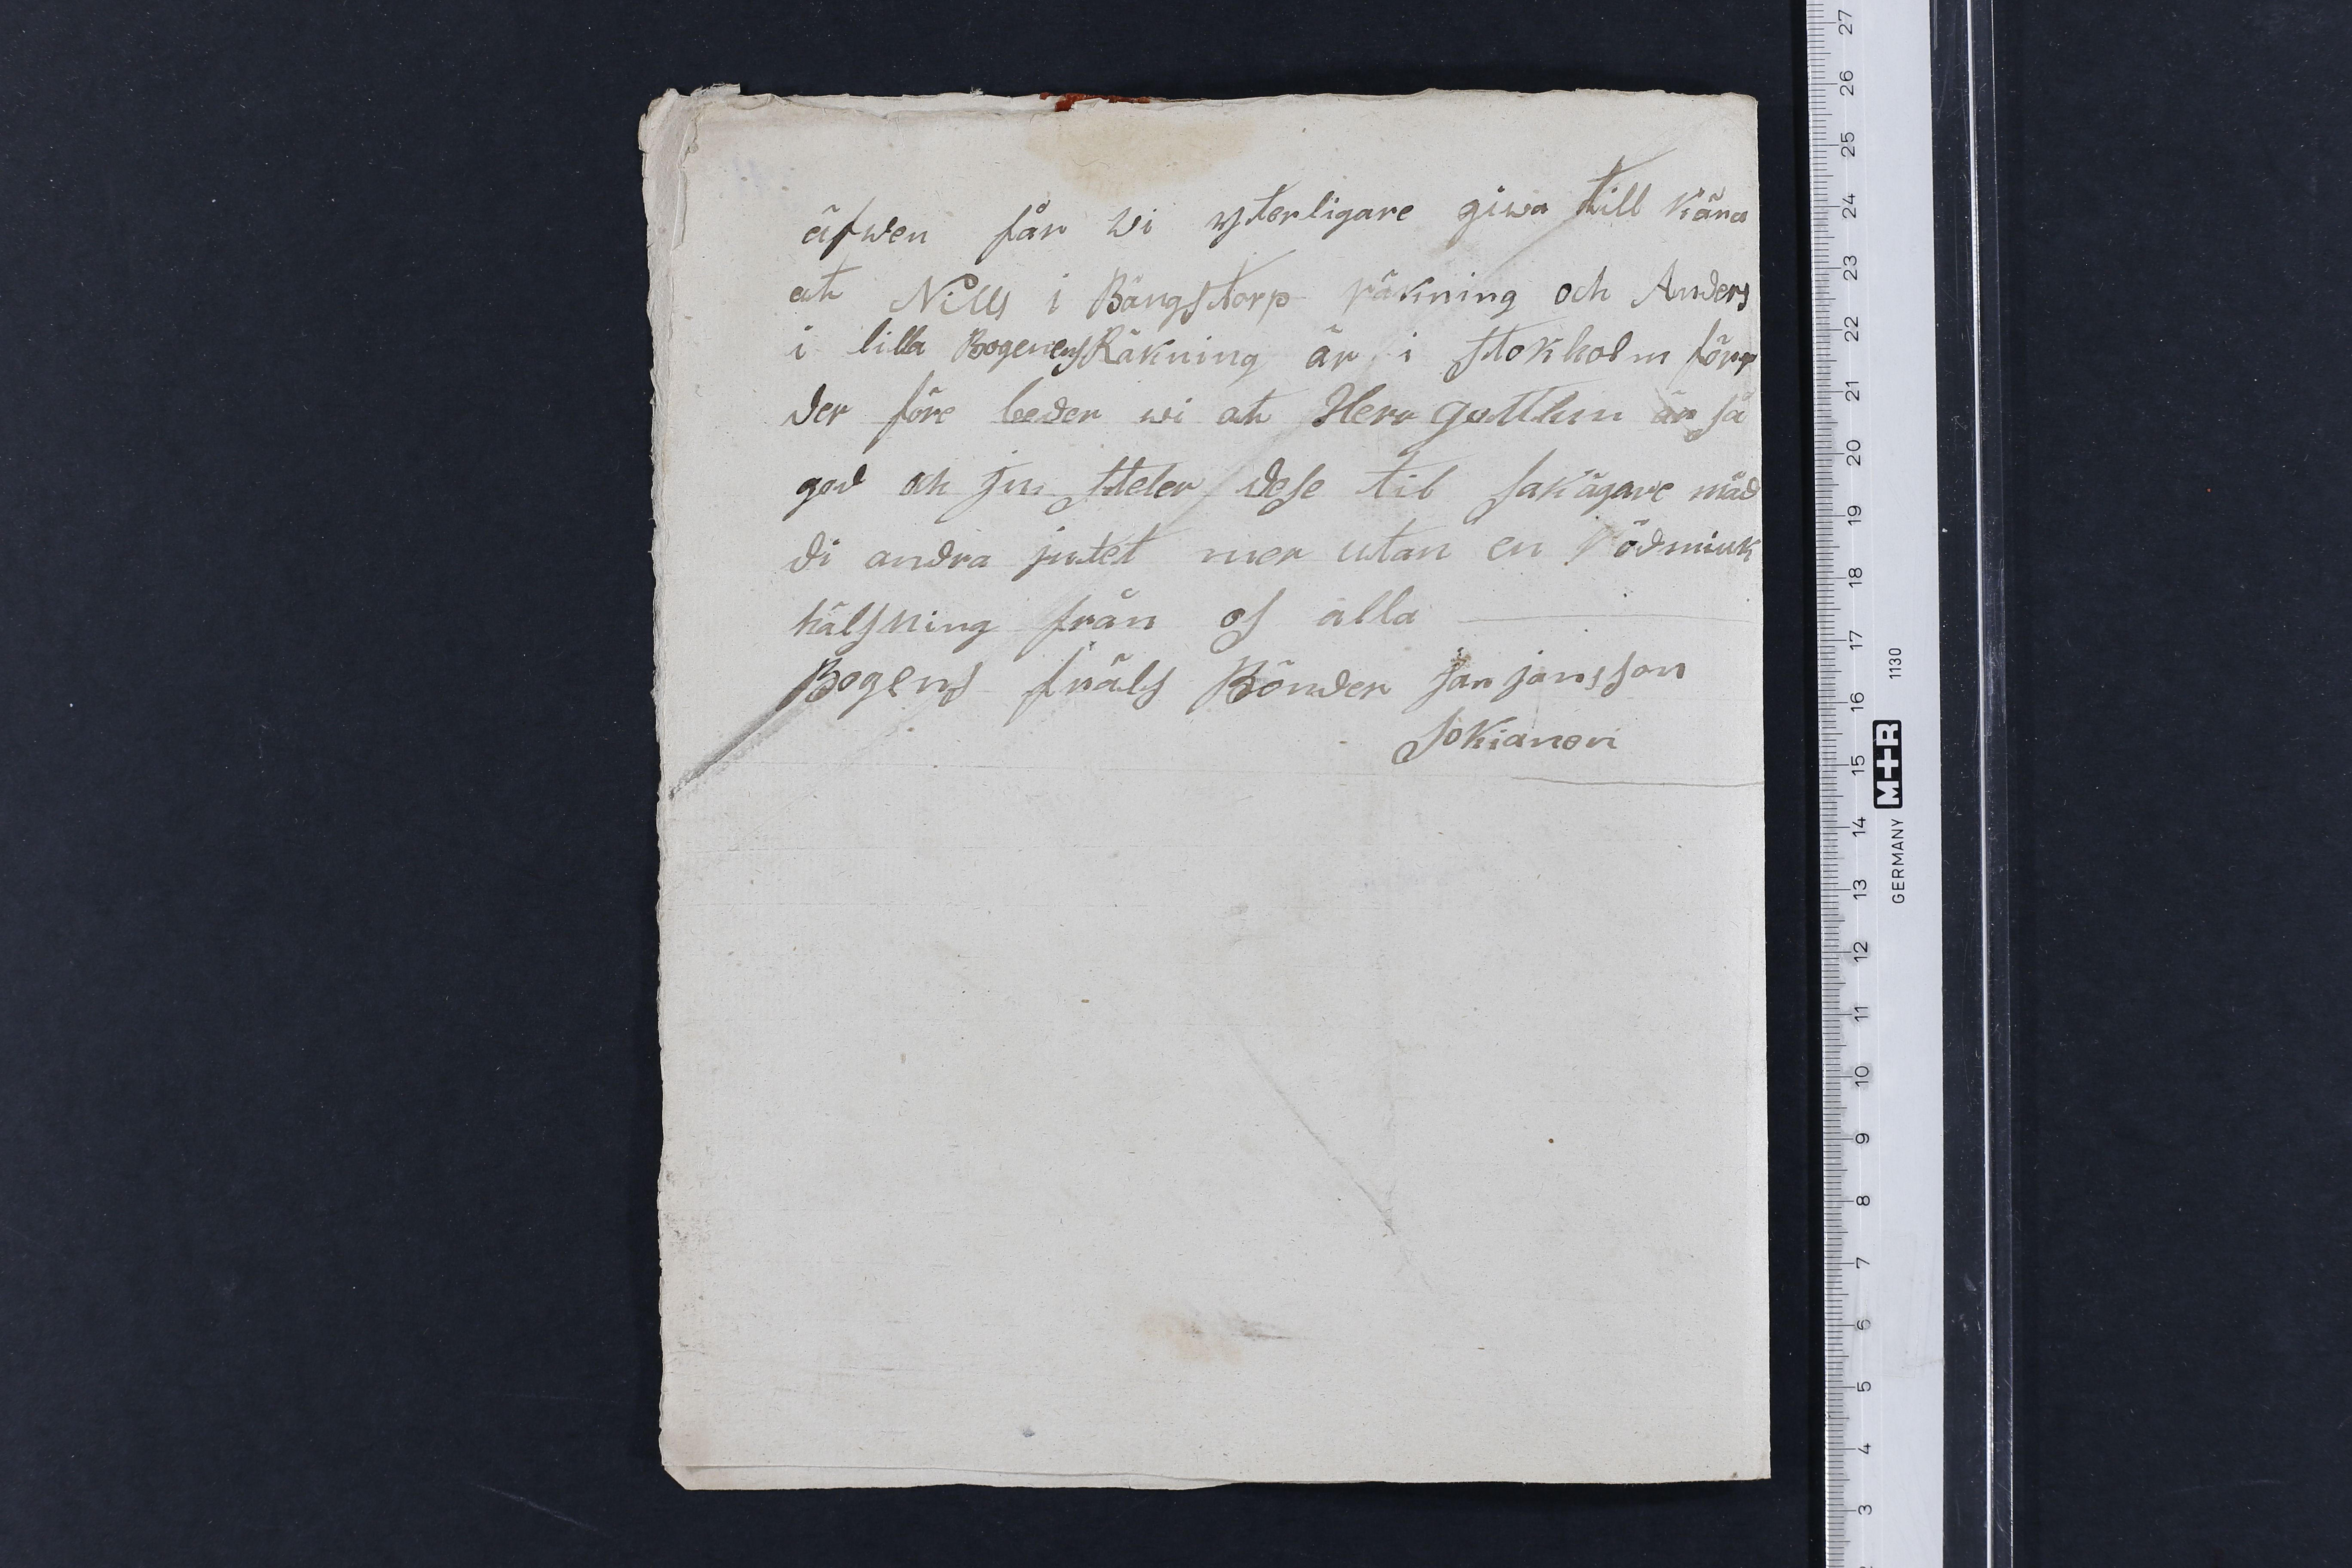 äfwen får wi ytterligare giwa till käna
at Nills i Bängstorp räkning och Anders
i lilla Bogenens Räkning är i stokholm förr
der före beder wi at Herr Gottlun är så
god och jn steler dese til sakägare mäd
di andra jntet mer utan en ödmiuk
hälsning från os alla
Bogens fräls Bönder Jan jansson
Sokianen
27
26
25
24
23
22
21
20
19
18
17
16
15
14
13
12
11
10
9
8
7
6
5
4
3
GERMANY M+R 1130